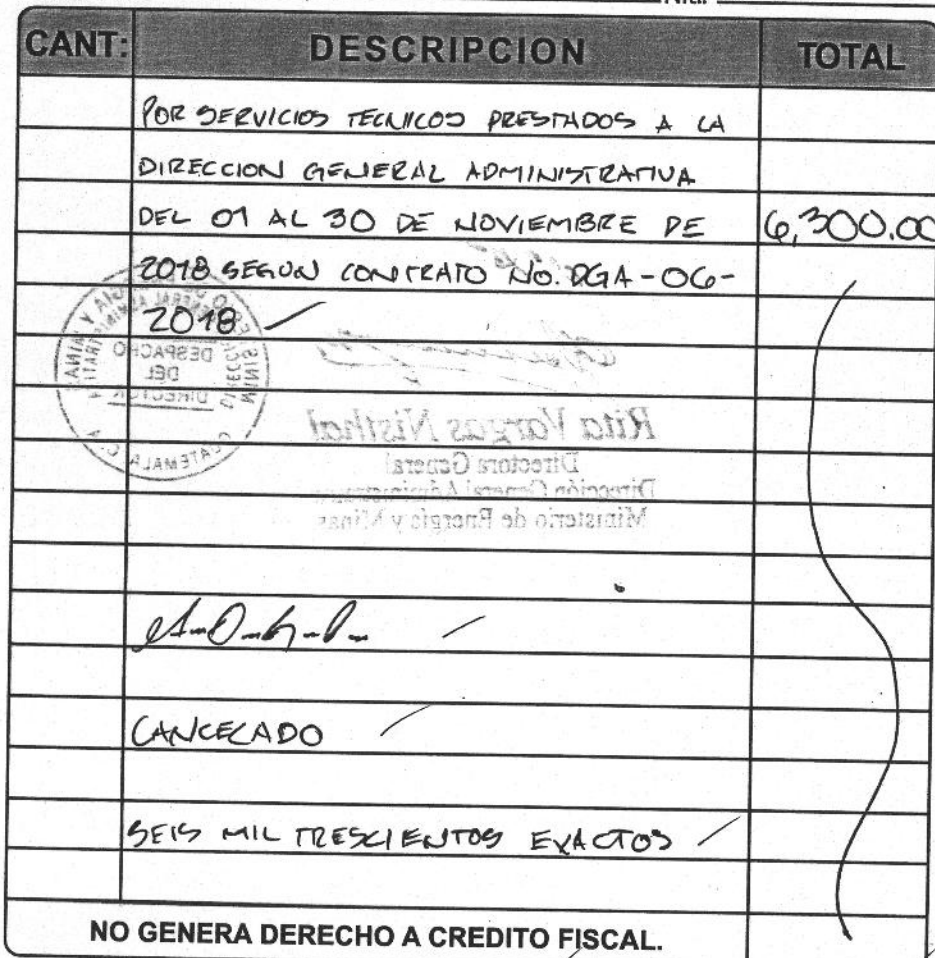 CANT: DESCRIPCION TOTAL
POR SERVICIOS TECNICOS PRESTADOS A LA
DIRECCION GENERAL ADMINISTRATIVA
DEL 01 AL 30 DE NOVIEMBRE DE 6,300.00
2018 SEGUN CONTRATO NO. DGA-06-
2018
DESPACHO
DEL
DIRECTOR
GUATEMALA, C.A.
Rita Vargas Nisthal
Directora General
Dirección General Administrativa
Ministerio de Energía y Minas
CANCELADO
SEIS MIL TRESCIENTOS EXACTOS
NO GENERA DERECHO A CREDITO FISCAL.